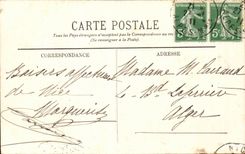 CARTE POSTALE
Tous les Pays étrangers n'acceptent pas la Correspondance au recto
(Se renseigner à la Poste)
CORRESPONDANCE
ADRESSE
Baisers affectueux
de Nice
Marguerite
Madame M.
Alger
5